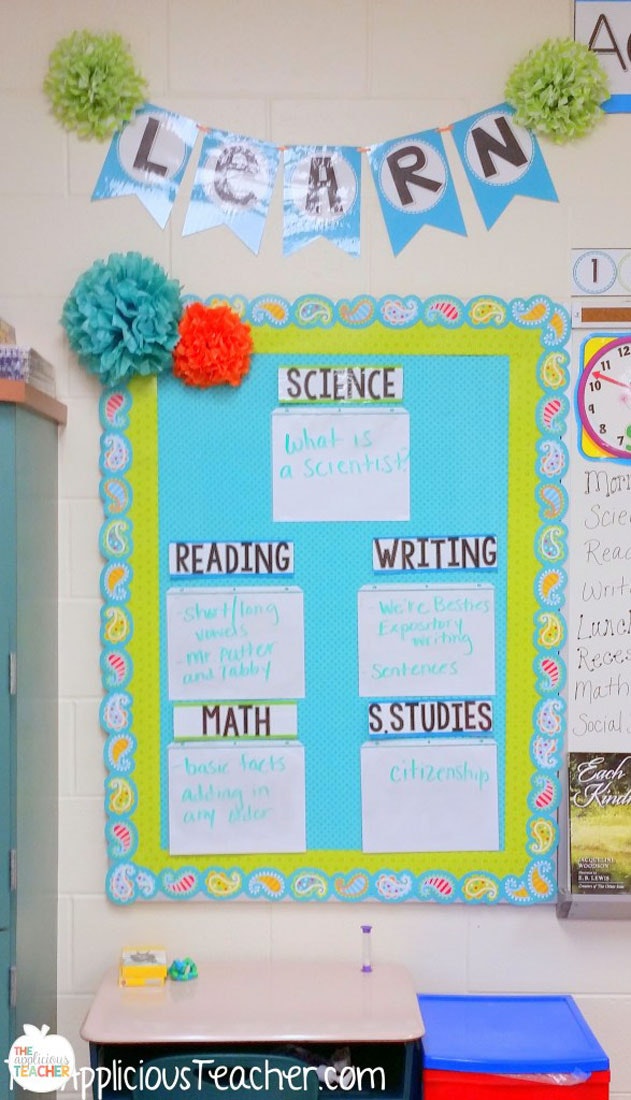 LEARN
SCIENCE
What is
a scientist?
READING
-short/long
vowels
-Mr. Putter
and Tabby
WRITING
-We're Besties
Expository
writing
-Sentences
MATH
-basic facts
adding in
any order
S.STUDIES
citizenship
1
10
9
8
7
6
Lunch
Math
Social
Each
JACQUELINE
WOODSON
E. B. LEWIS
THE
applicious
TEACHER
TheAppliciousTeacher.com